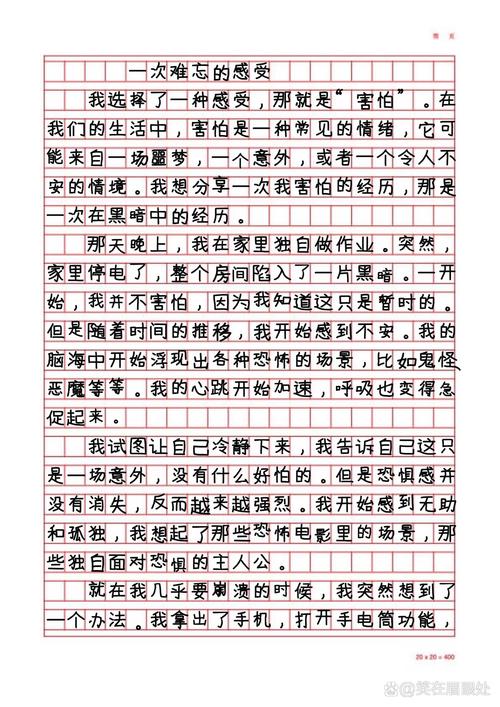 第 页
一次难忘的感受
我选择了一种感受，那就是“害怕”。在
我们的生活中，害怕是一种常见的情绪，它可
能来自一场噩梦，一个意外，或者一个令人不
安的情境。我想分享一次我害怕的经历，那是
一次在黑暗中的经历。
那天晚上，我在家里独自做作业。突然，
家里停电了，整个房间陷入了一片黑暗。一开
始，我并不害怕，因为我知道这只是暂时的。
但是随着时间的推移，我开始感到不安。我的
脑海中开始浮现出各种恐怖的场景，比如鬼怪、
恶魔等等。我的心跳开始加速，呼吸也变得急
促起来。
我试图让自己冷静下来，我告诉自己这只
是一场意外，没有什么好怕的。但是恐惧感并
没有消失，反而越来越强烈。我开始感到无助
和孤独，我想起了那些恐怖电影里的场景，那
些独自面对恐惧的主人公。
就在我几乎要崩溃的时候，我突然想到了
一个办法。我拿出了手机，打开手电筒功能，
20 x 20 = 400
@笑在眉眼处